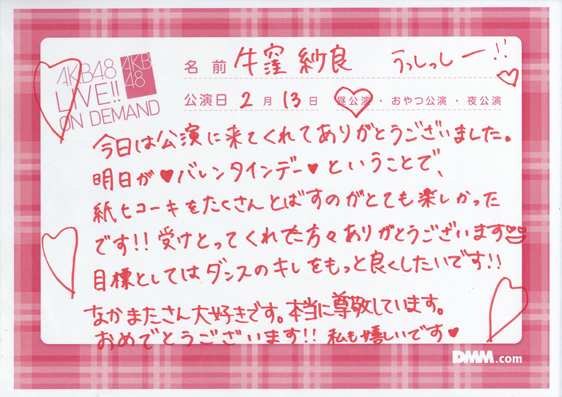 AKB48
LIVE!!
ON DEMAND
AKB
48
名 前 牛窪 紗良 うっしっしー!!
公演日 2 月 13 日 昼公演・おやつ公演・夜公演
今日は公演に来てくれてありがとうございました。
明日が♥バレンタインデー♥ということで、
紙ヒコーキをたくさんとばすのがとても楽しかった
です!! 受けとってくれた方々ありがとうございます
目標としてはダンスのキレをもっと良くしたいです!!
なかまたさん大好きです。本当に尊敬しています。
おめでとうございます!! 私も嬉しいです♥
DMM.com